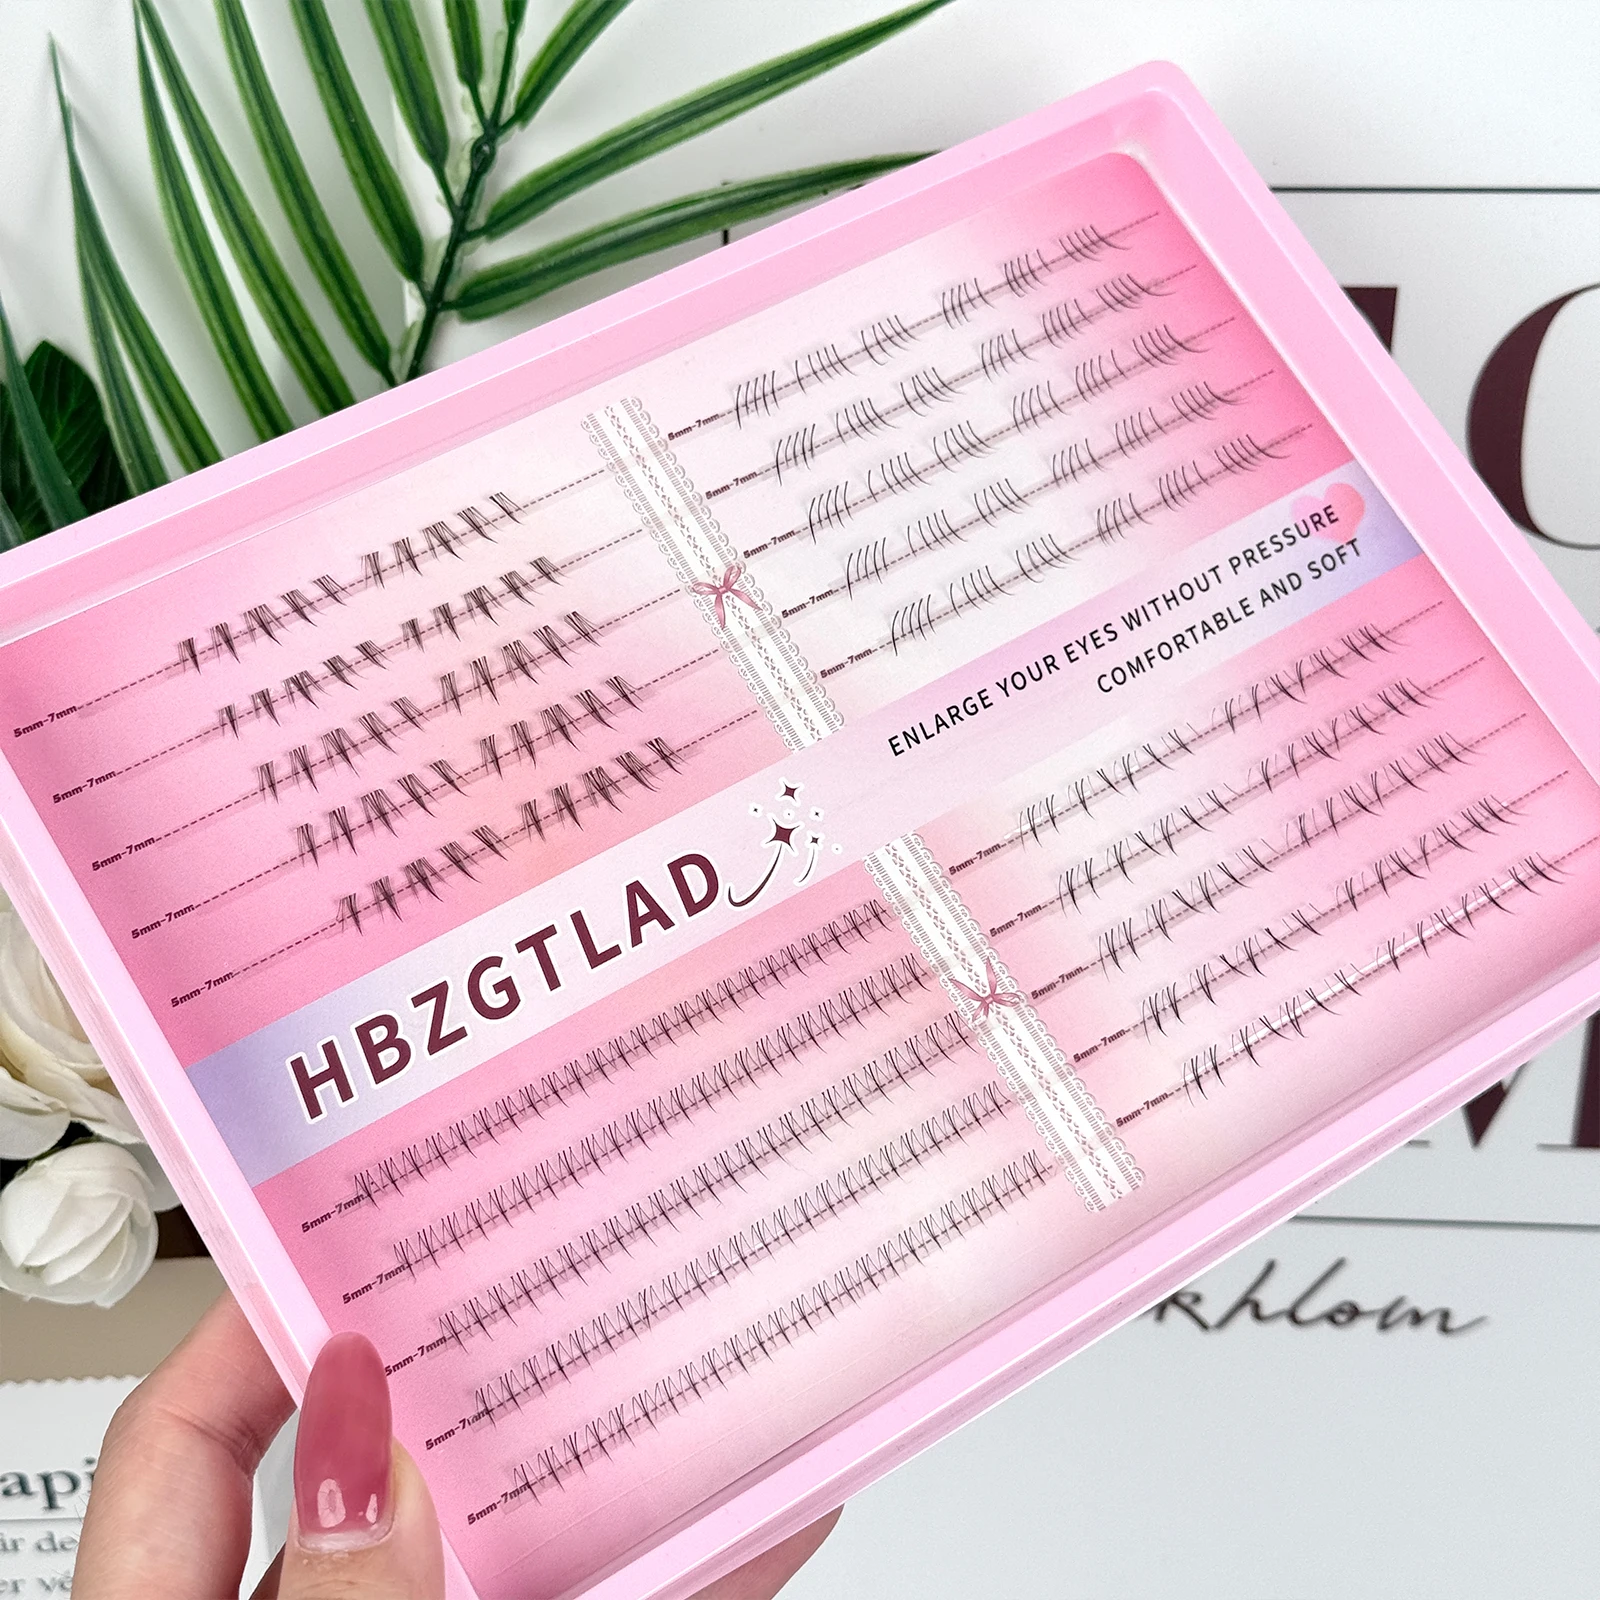 5mm-7mm
5mm-7mm
5mm-7mm
5mm-7mm
5mm-7mm
5mm-7mm
5mm-7mm
5mm-7mm
5mm-7mm
5mm-7mm
ENLARGE YOUR EYES WITHOUT PRESSURE
COMFORTABLE AND SOFT
HBZGTLAD
5mm-7mm
5mm-7mm
5mm-7mm
5mm-7mm
5mm-7mm
5mm-7mm
5mm-7mm
5mm-7mm
5mm-7mm
5mm-7mm